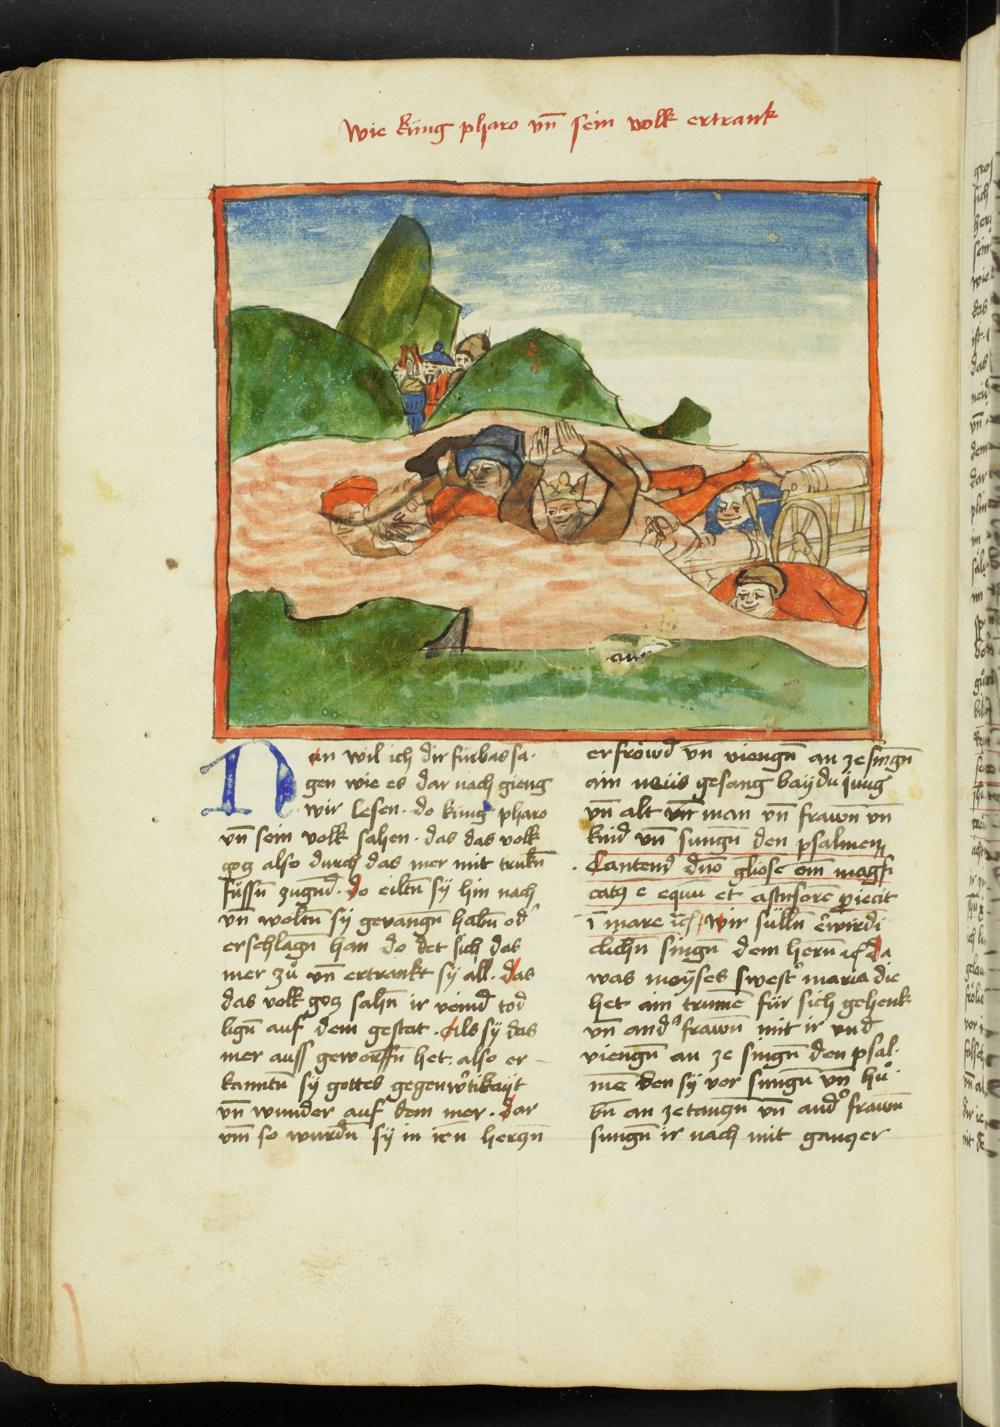 Wie küng pharo vn̄ sein volk ertrank
Nun wil ich dir fürbas sa-
gen wie es dar nach gieng
wir lesen · do küng pharo
vn̄ sein volk sahen · das das volk
gog also durch das mer mit trukn̄
füssn̄ zugnd · do eiltn̄ sÿ hin nach
vn̄ woltn̄ sÿ gevangn̄ habn̄ od'
erschlagn̄ han do det sich das
mer zů vn̄ ertrankt sÿ all · das
das volk gog sahn̄ ir veind tod
lign̄ auf dem gestat · als sÿ das
mer auss geworffn̄ het · also er-
kanntn̄ sÿ gottes gegenwrtikayt
vn̄ wunder auf dem mer · dar
vm̄ so wurdn̄ sÿ in irn̄ herczn̄
erfrowd vn viengn̄ an ze singn̄
ain neüs gesang baÿdu jung
vn̄ alt vn̄ man vn̄ frawn̄ vn̄
kind vn̄ sungn̄ den psalmen
Cantem9 dn̄o gl̄iose em̄ magfi
catq e equū et asensorē p̱iecit
ī mare ⁊c̄ wir sülln̄ erwirdi
clichn̄ singn̄ dem hern̄ ⁊c̄ da
was moÿses swest' maria die
het ain trumē für sich gehenk
vn̄ and' frawn̄ mit ir vnd
viengn̄ an ze singn̄ den psal-
mē den sÿ vor sungn̄ vn̄ hů-
bn̄ an ze tanczn̄ vn̄ and' frawn̄
sungn̄ ir nach mit ganczer